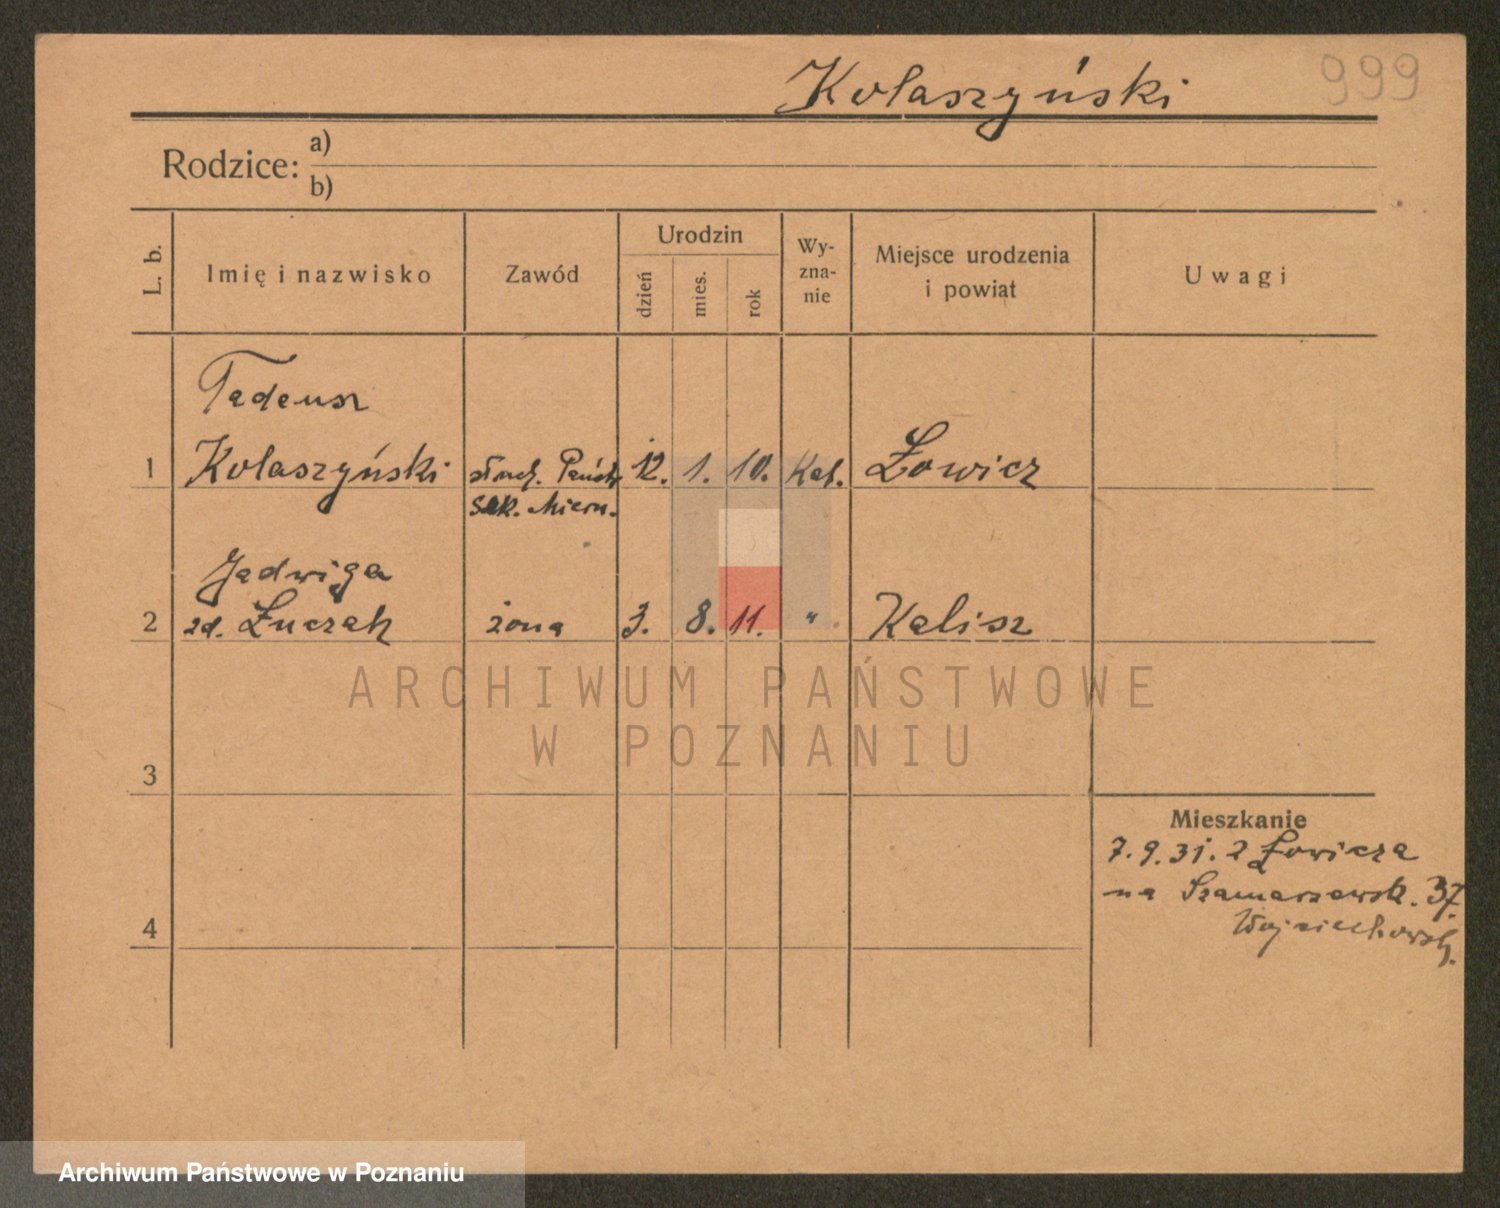 Kolaszyński
999
Rodzice: a)
b)
L. b.
Imię i nazwisko
Zawód
Urodzin
dzień
mies.
rok
Wy-
zna-
nie
Miejsce urodzenia
i powiat
Uwagi
Tadeusz
1 Kolaszyński słuch. Państw. 12. 1. 10. Kat. Łowicz
Szk. Miern.
Jadwiga
2 zd. Łuczak żona 3. 8. 11. " Kalisz
3
Mieszkanie
7.9.31. z Łowicza
na Szamarzewsk. 37.
Wojciechowsk.
4
ARCHIWUM PAŃSTWOWE
W POZNANIU
Archiwum Państwowe w Poznaniu